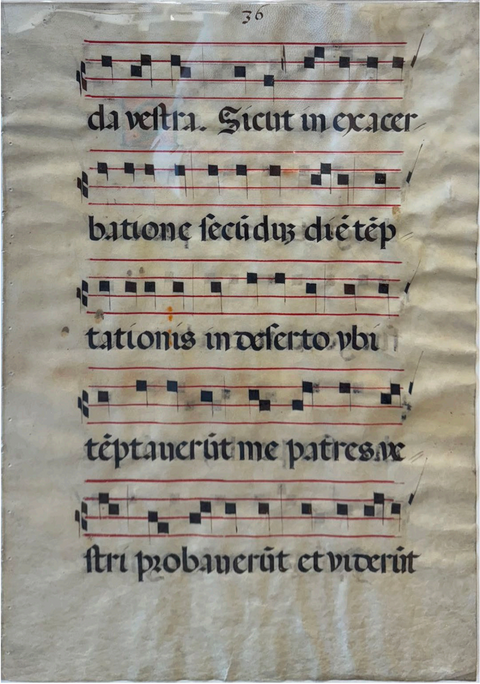 36
da vestra. Sicut in exacer
batione secūduʒ diē tēp
tationis in deserto vbi
tēptauerūt me patres ve
stri probauerūt et viderūt